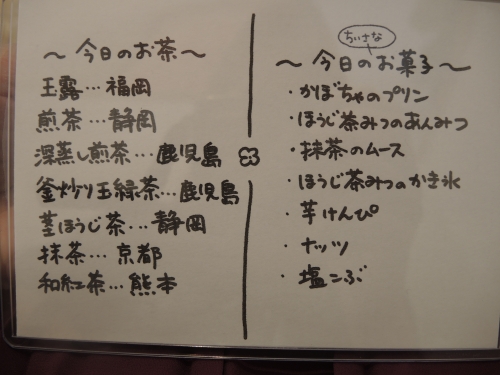 〜今日のお茶〜
玉露…福岡
煎茶…静岡
深蒸し煎茶…鹿児島
釜炒り玉緑茶…鹿児島
茎ほうじ茶…静岡
抹茶…京都
和紅茶…熊本
ちいさな
〜今日のお菓子〜
・かぼちゃのプリン
・ほうじ茶みつのあんみつ
・抹茶のムース
・ほうじ茶みつのかき氷
・芋けんぴ
・ナッツ
・塩こぶ